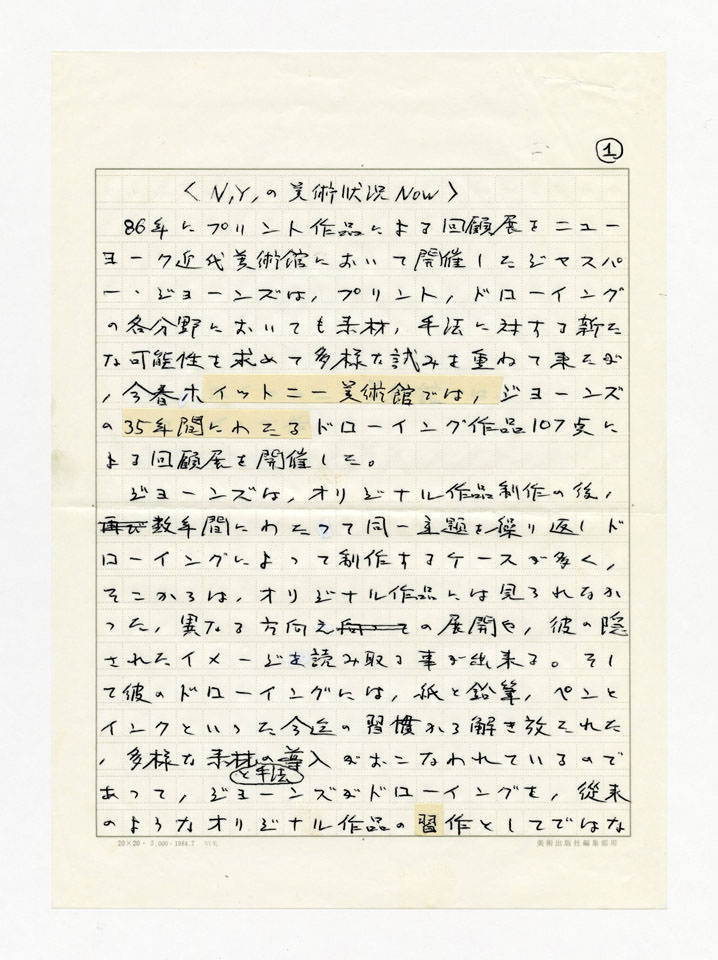 ①
〈N,Y,の美術状況Now〉
86年にプリント作品による回顧展をニュー
ヨーク近代美術館において開催したジャスパ
ー・ジョーンズは,プリント,ドローイング
の各分野においても素材,手法に対する新た
な可能性を求めて多様な試みを重ねて来たが
,今春ホイットニー美術館では,ジョーンズ
の35年間にわたるドローイング作品107点に
よる回顧展を開催した。
ジョーンズは,オリジナル作品制作の後,
数年間にわたって同一主題を繰り返しド
ローイングによって制作するケースが多く,
そこからは,オリジナル作品には見られなか
った,異なる方向えの展開や,彼の隠
されたイメージを読み取る事が出来る。そし
て彼のドローイングには,紙と鉛筆,ペンと
インクといった今迄の習慣から解き放たれた
,多様な素材の導入がおこなわれているので
と手法
あって,ジョーンズがドローイングを,従来
のようなオリジナル作品の習作としてではな
20×20・5,000・1984.7
美術出版社編集部用